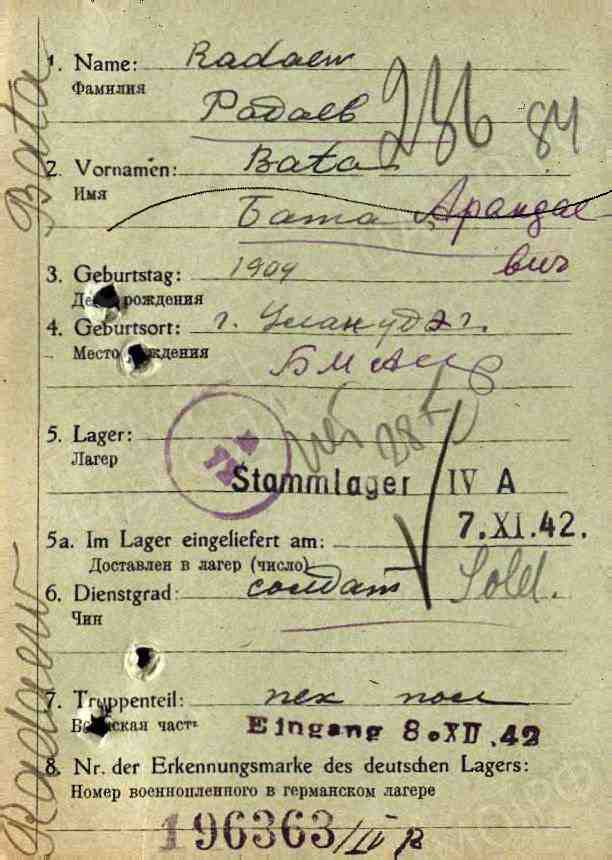 1. Name: Radaew
Фамилия
Радаев 236 84
2. Vornamen: Bata
Имя
Бата Арандае
вич
3. Geburtstag: 1904
рождения
4. Geburtsort: г. Улан удэ г.
Место рождения
БМАССР
5. Lager:
Лагер 28
Stammlager IV A
7.XI.42.
5a. Im Lager eingeliefert am:
Доставлен в лагер (число)
6. Dienstgrad: солдат Sold.
Чин
7. Truppenteil: пех полк
Воинская часть Eingang 8.XII.42
8. Nr. der Erkennungsmarke des deutschen Lagers:
Номер военнопленного в германском лагере
196363/IV B
Radaew Bata